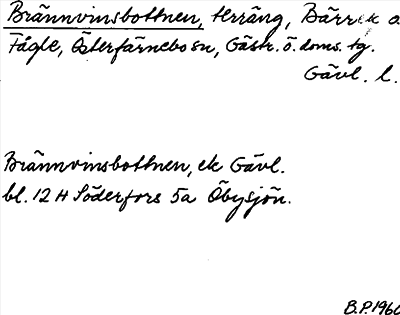 Brännvinsbottnen, terräng, Bärrek o.
Fågle, Österfärnebo sn, Gästr. ö. doms. tg.
Gävl. l.
Brännvinsbottnen, ek Gävl.
bl. 12 H Söderfors 5a Öbysjön.
B.P. 1960